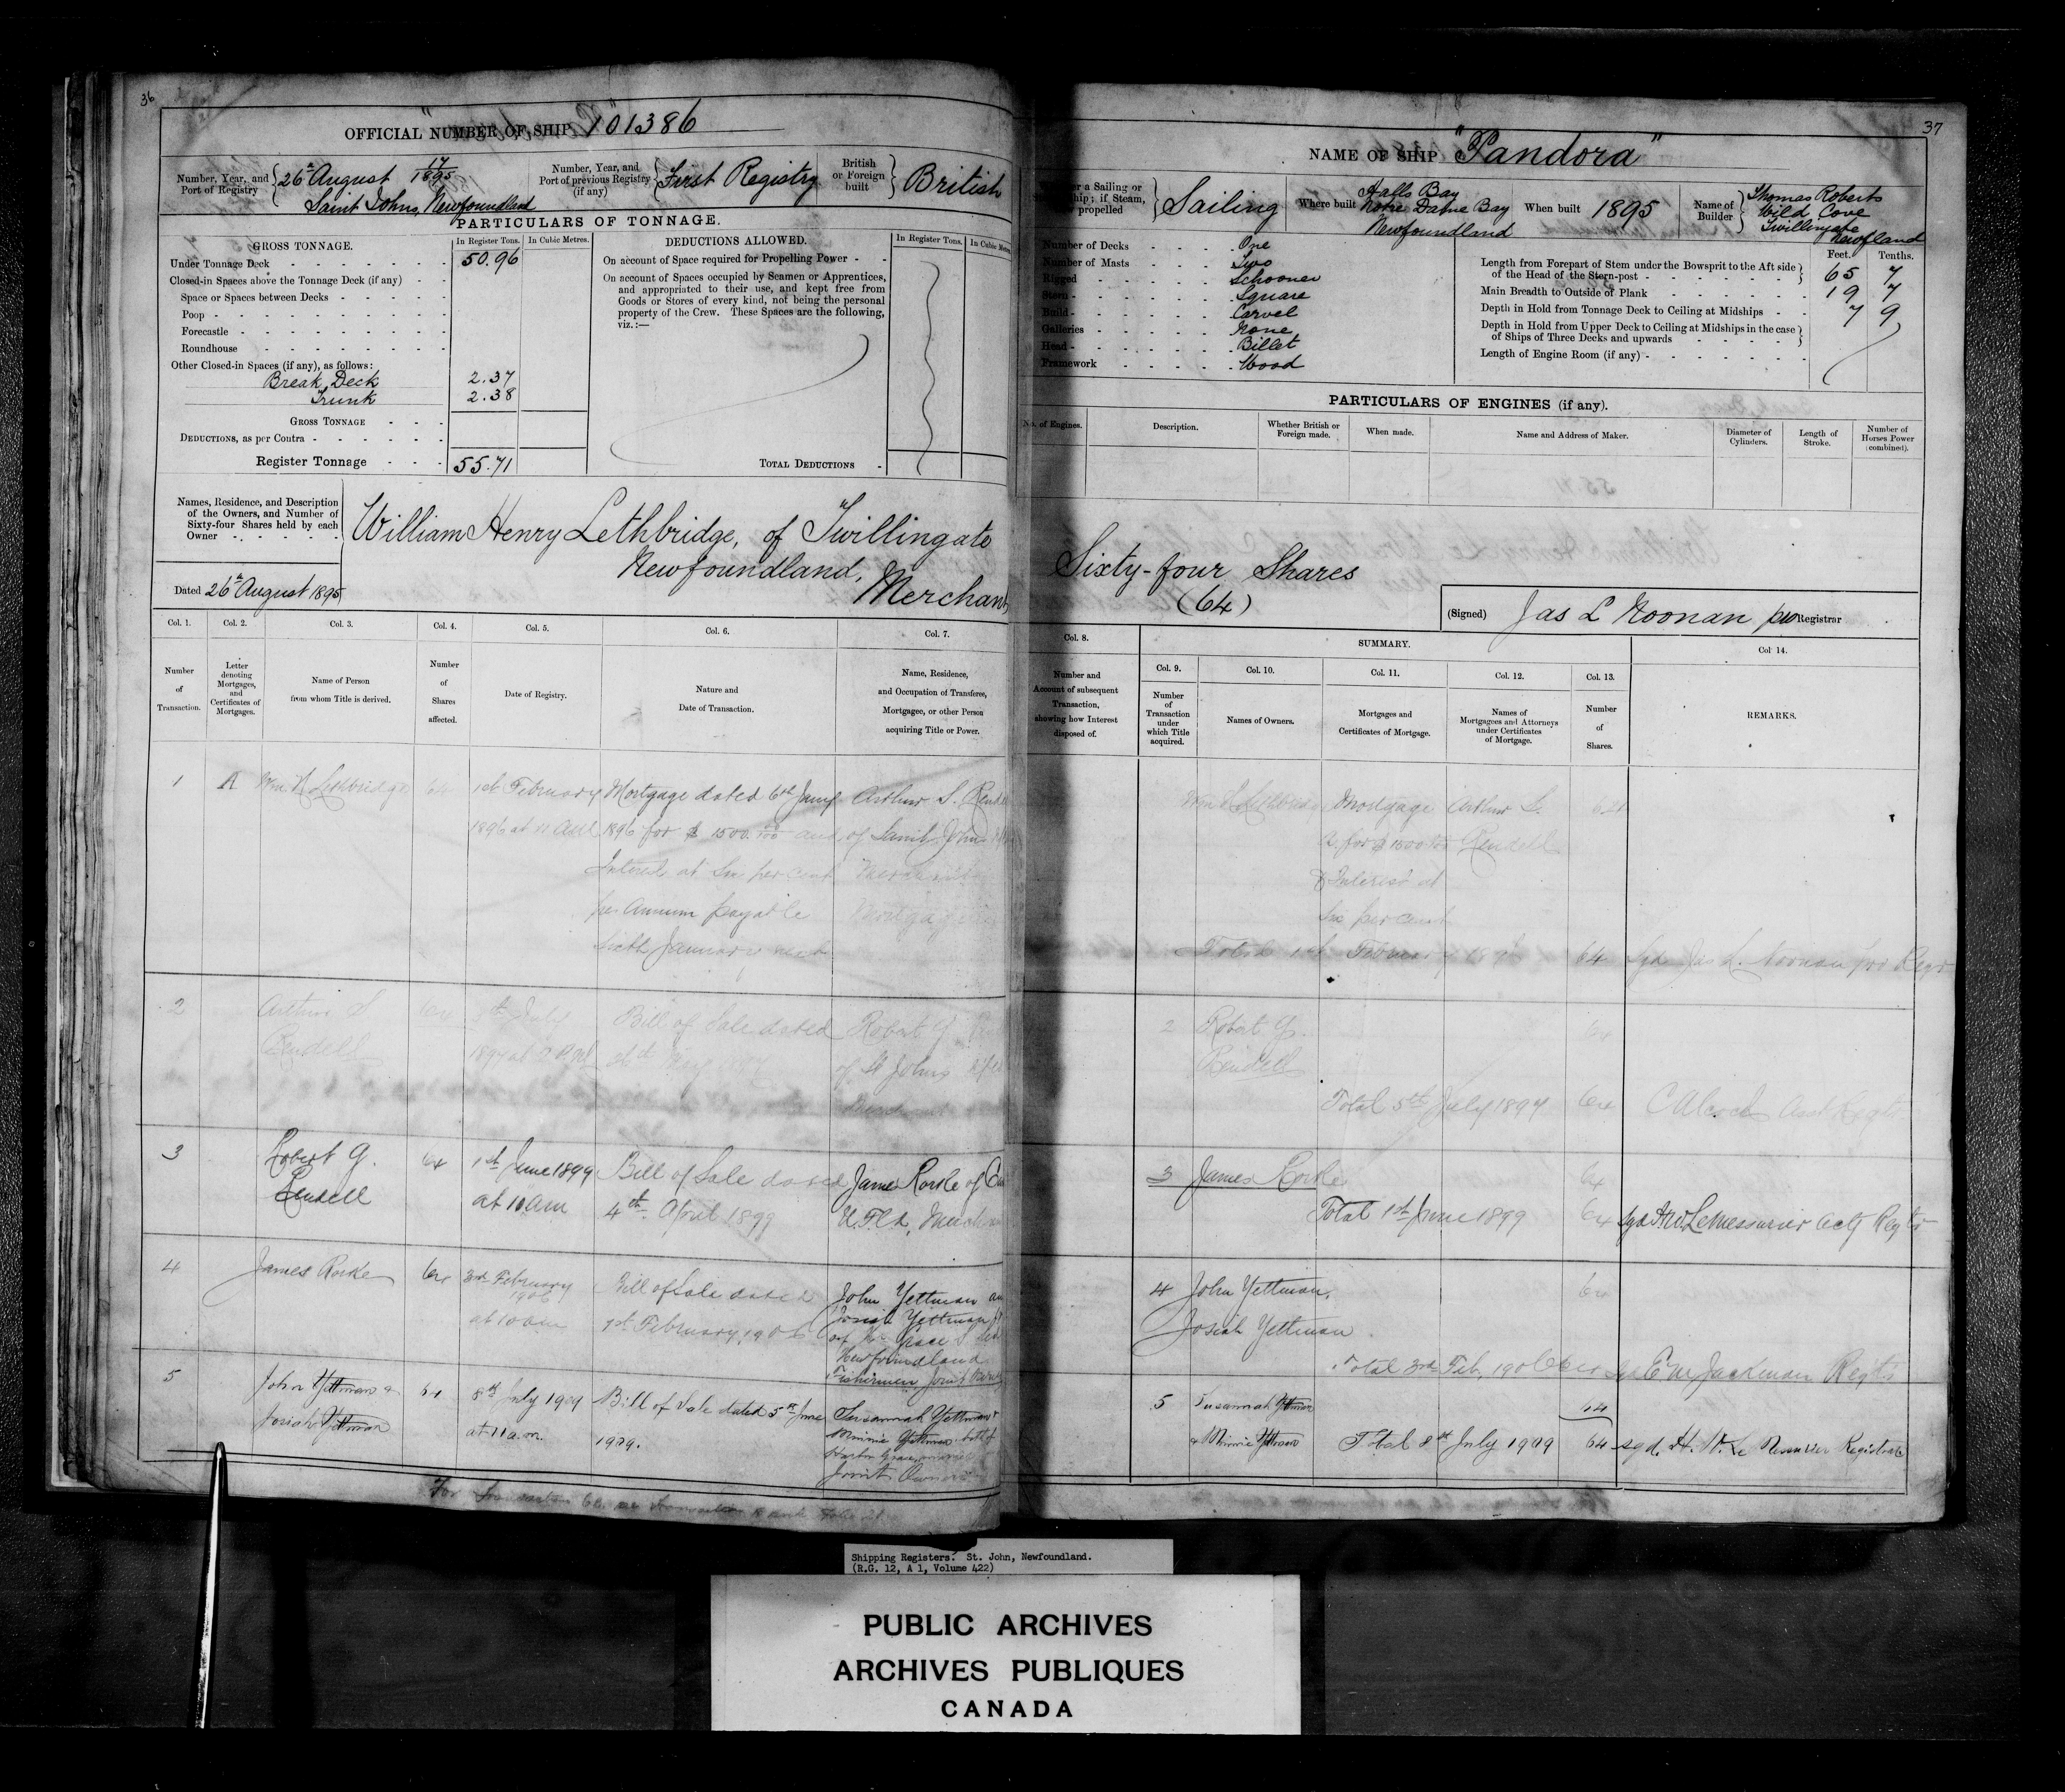 36
OFFICIAL NUMBER OF SHIP 101386
Number, Year, and Port of Registry
26th August 17/1895
Saint Johns, Newfoundland
Number, Year, and Port of previous Registry (if any)
First Registry
British or Foreign built
British
PARTICULARS OF TONNAGE.
GROSS TONNAGE.
In Register Tons.
In Cubic Metres.
Under Tonnage Deck 50.96
Closed-in Spaces above the Tonnage Deck (if any)
Space or Spaces between Decks
Poop
Forecastle
Roundhouse
Other Closed-in Spaces (if any), as follows:
Break Deck 2.37
Trunk 2.38
GROSS TONNAGE
DEDUCTIONS, as per Contra
Register Tonnage 55.71
DEDUCTIONS ALLOWED.
In Register Tons.
In Cubic
On account of Space required for Propelling Power
On account of Spaces occupied by Seamen or Apprentices,
and appropriated to their use, and kept free from
Goods or Stores of every kind, not being the personal
property of the Crew. These Spaces are the following,
viz.:—
TOTAL DEDUCTIONS
Names, Residence, and Description
of the Owners, and Number of
Sixty-four Shares held by each
Owner
William Henry Lethbridge, of Twillingate
Newfoundland,
Merchant
Dated 26th August 1895
Col. 1.
Number of Transaction.
Col. 2.
Letter denoting Mortgages, and Certificates of Mortgages.
Col. 3.
Name of Person from whom Title is derived.
Col. 4.
Number of Shares affected.
Col. 5.
Date of Registry.
Col. 6.
Nature and Date of Transaction.
Col. 7.
Name, Residence, and Occupation of Transferee, Mortgagee, or other Person acquiring Title or Power.
1 A Wm H Lethbridge 64 1st February Mortgage dated 6th Jany Arthur S.
1896 at 11 AM 1896 for $ 1500.00/100 and of Saint Johns
Interest at Six per cent
per Annum payable
Sixth January next
2 Arthur S 64 Bill of Sale dated Robert G.
Rendell 1897 of St Johns
3 Robert G. 64 1st June 1899 Bill of Sale dated James Rorke of
Rendell at 10 am 4th April 1899
4 James Rorke 64 3rd February Bill of Sale dated John Yettman
1906
at 10 am 1st February, 1906 Josiah Yettman
Grace
Newfoundland
Fishermen Joint
5 John Yettman & 64 8th July 1909 Bill of Sale dated 5th June Susannah Yettman &
Josiah Yettman at 11 a.m. 1909. Minnie Yettman both of
Harbor Grace
Joint Owners
For Transaction
37
NAME OF SHIP "Pandora"
a Sailing or
ship; if Steam,
propelled
Sailing
Where built
Halls Bay
Notre Dame Bay
Newfoundland
When built 1895
Name of Builder
Thomas Roberts
Wild Cove
Twillingate
Newfland
Number of Decks One
Number of Masts Two
Rigged Schooner
Stern Square
Build Carvel
Galleries None
Head Billet
Framework Wood
Feet. Tenths.
Length from Forepart of Stem under the Bowsprit to the Aft side
of the Head of the Stern-post 65 7
Main Breadth to Outside of Plank 19 7
Depth in Hold from Tonnage Deck to Ceiling at Midships 7 9
Depth in Hold from Upper Deck to Ceiling at Midships in the case
of Ships of Three Decks and upwards
Length of Engine Room (if any)
PARTICULARS OF ENGINES (if any).
No. of Engines.
Description.
Whether British or Foreign made.
When made.
Name and Address of Maker.
Diameter of Cylinders.
Length of Stroke.
Number of Horses Power (combined).
Sixty-four Shares
(64)
(Signed) Jas L Noonan pro Registrar
Col. 8.
Number and Account of subsequent Transaction, showing how Interest disposed of.
SUMMARY.
Col. 9.
Number of Transaction under which Title acquired.
Col. 10.
Names of Owners.
Col. 11.
Mortgages and Certificates of Mortgage.
Col. 12.
Names of Mortgagees and Attorneys under Certificates of Mortgage.
Col. 13.
Number of Shares.
Col. 14.
REMARKS.
Mortgage Arthur S. 64
A. for $ 1500 Rendell
& Interest at
Six per cent
Total 1st February 64 Sgd Jas L. Noonan pro Regr
2 Robert G. 64
Rendell
Total 5th July 1897 64 Asst Regtr
3 James Rorke 64
Total 1st June 1899 64 Sgd H W LeMessurier Actg Regtr
4 John Yettman, 64
Josiah Yettman
Total 3rd Feb, 1906 64 Jackman Regtr
5 Susannah Yettman 64
& Minnie Yettman Total 8th July 1909 64 sgd. H. W. Le Messurier Registrar
Shipping Registers. St. John, Newfoundland.
(R.G. 12, A 1, Volume 422)
PUBLIC ARCHIVES
ARCHIVES PUBLIQUES
CANADA